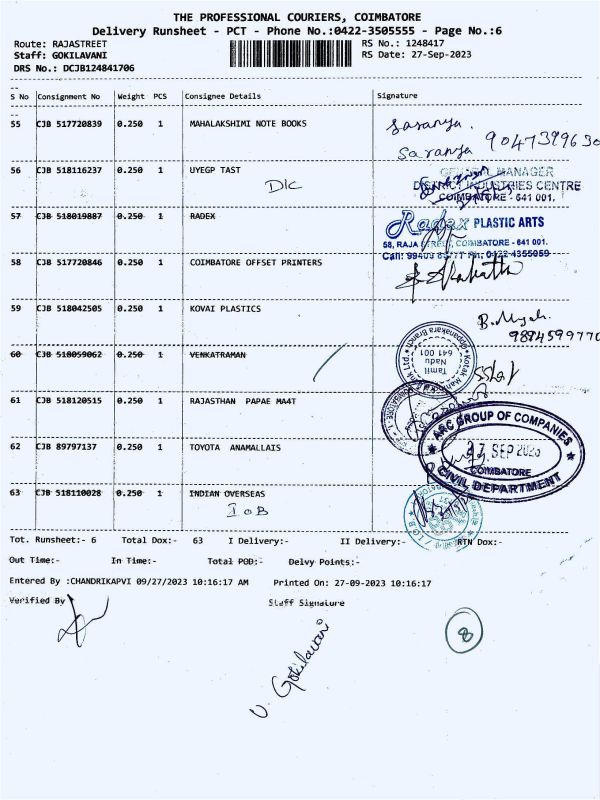 THE PROFESSIONAL COURIERS, COIMBATORE
Delivery Runsheet - PCT - Phone No.:0422-3505555 - Page No.:6
Route: RAJASTREET RS No.: 1248417
Staff: GOKILAVANI RS Date: 27-Sep-2023
DRS No.: DCJB124841706
S No Consignment No Weight PCS Consignee Details Signature
55 CJB 517720839 0.250 1 MAHALAKSHIMI NOTE BOOKS Saranya.
Saranya 9047399630
56 CJB 518116237 0.250 1 UYEGP TAST
DIC
GENERAL MANAGER
DISTRICT INDUSTRIES CENTRE
COIMBATORE - 641 001.
57 CJB 518019887 0.250 1 RADEX
Radex PLASTIC ARTS
58, RAJA STREET, COIMBATORE - 641 001.
Ph: 0422 4355059
58 CJB 517720846 0.250 1 COIMBATORE OFFSET PRINTERS
59 CJB 518042505 0.250 1 KOVAI PLASTICS
9894599770
60 CJB 518059062 0.250 1 VENKATRAMAN
Tamil
Nadu
641 001
61 CJB 518120515 1 0.250 1 RAJASTHAN PAPAE MA4T
62 CJB 89797137 0.250 1 TOYOTA ANAMALLAIS
ARC GROUP OF COMPANIES
27 SEP 2023
COIMBATORE
CIVIL DEPARTMENT
63 CJB 518110028 0.250 1 INDIAN OVERSEAS
IOB
Tot. Runsheet:- 6 Total Dox:- 63 I Delivery:- II Delivery:- RTN Dox:-
Out Time:- In Time:- Total POD:- Delvy Points:-
Entered By :CHANDRIKAPVI 09/27/2023 10:16:17 AM Printed On: 27-09-2023 10:16:17
Verified By Staff Signature
8
V. Gokilavani